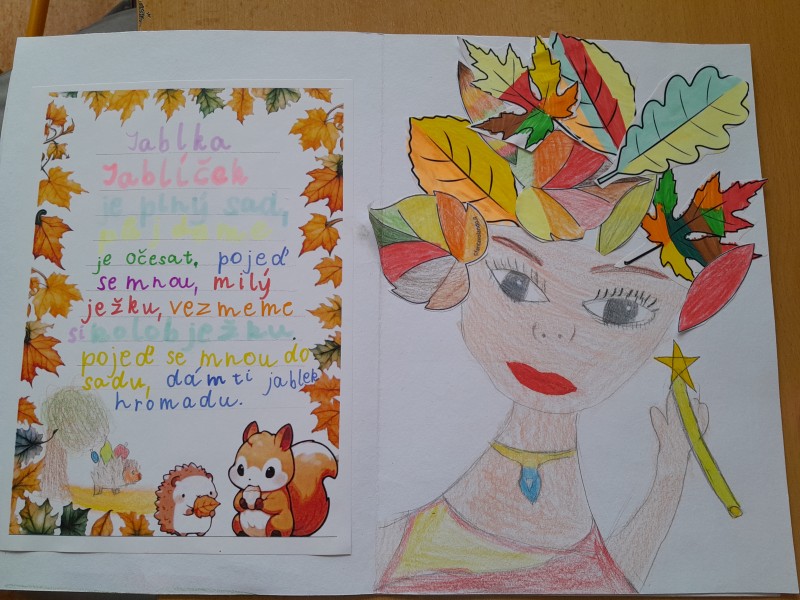 Jablka
Jablíček
je plný sad,
půjdeme
je očesat, pojeď
se mnou, milý
ježku, vezmeme
si koloběžku.
pojeď se mnou do
sadu, dám ti jablek
hromadu.